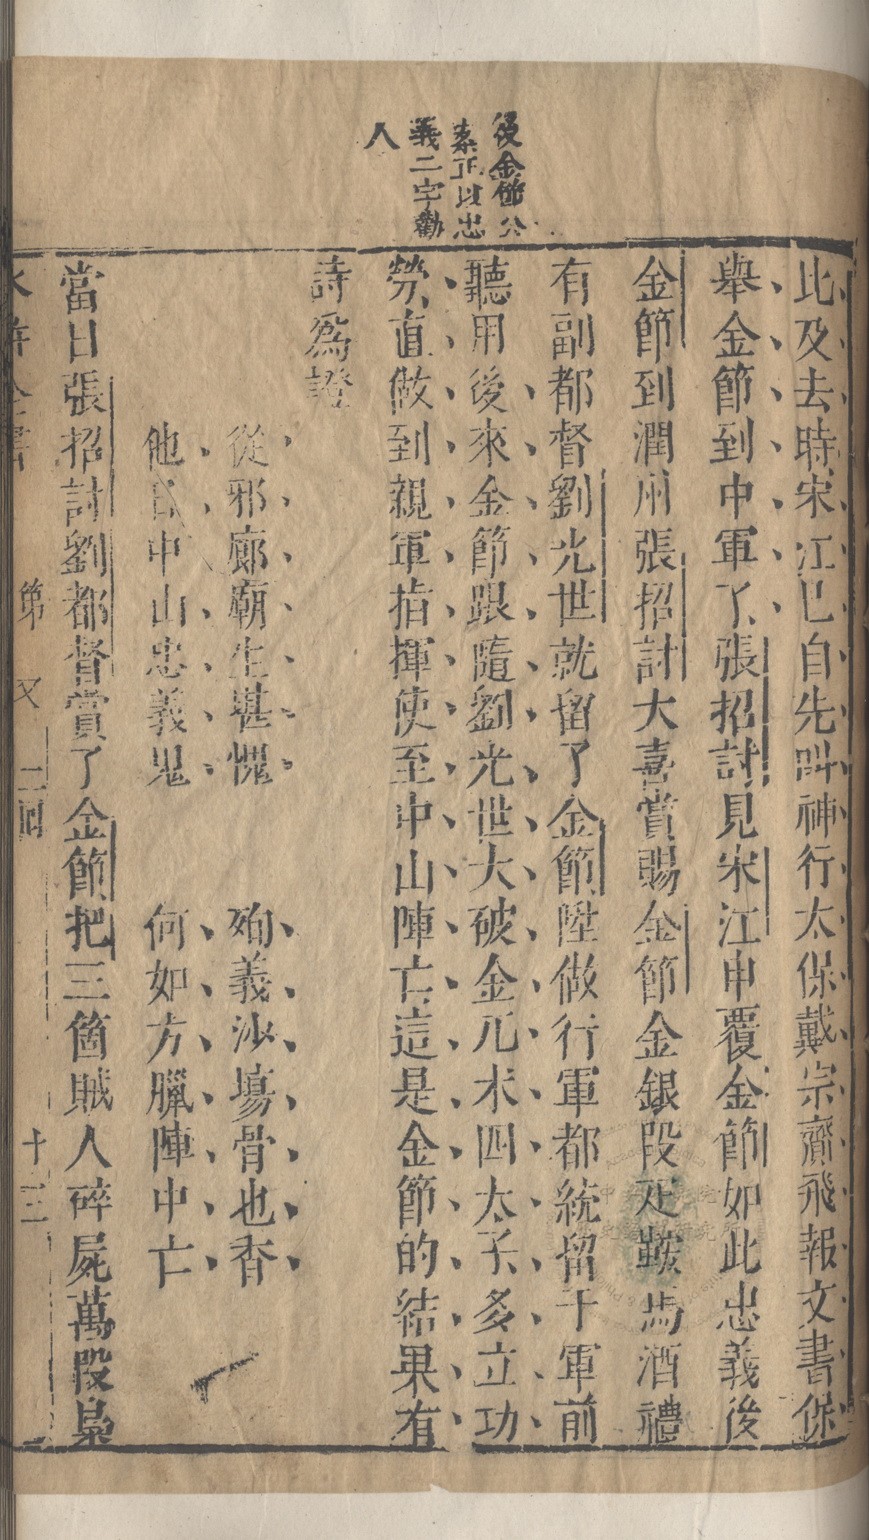 後金節公
義二字勸
人
此及去時宋江已自先叫神行太保戴宗齎飛報文書保
舉金節到中軍了張招討見宋江申覆金節如此忠義後
金節到潤州張招討大喜賞賜金節金銀段疋鞍馬酒禮
有副都督劉光世就留了金節陞做行軍都統留于軍前
聽用後來金節跟隨劉光世大破金兀朮四太子多立功
勞直做到親軍指揮使至中山陣亡這是金節的結果有
詩爲證
從邪廊廟生堪愧 殉義沙場骨也香
他日中山忠義鬼 何如方臘陣中亡
當日張招討劉都督賞了金節把三箇賊人碎屍萬段梟
水滸全書 第 又 二回 十三